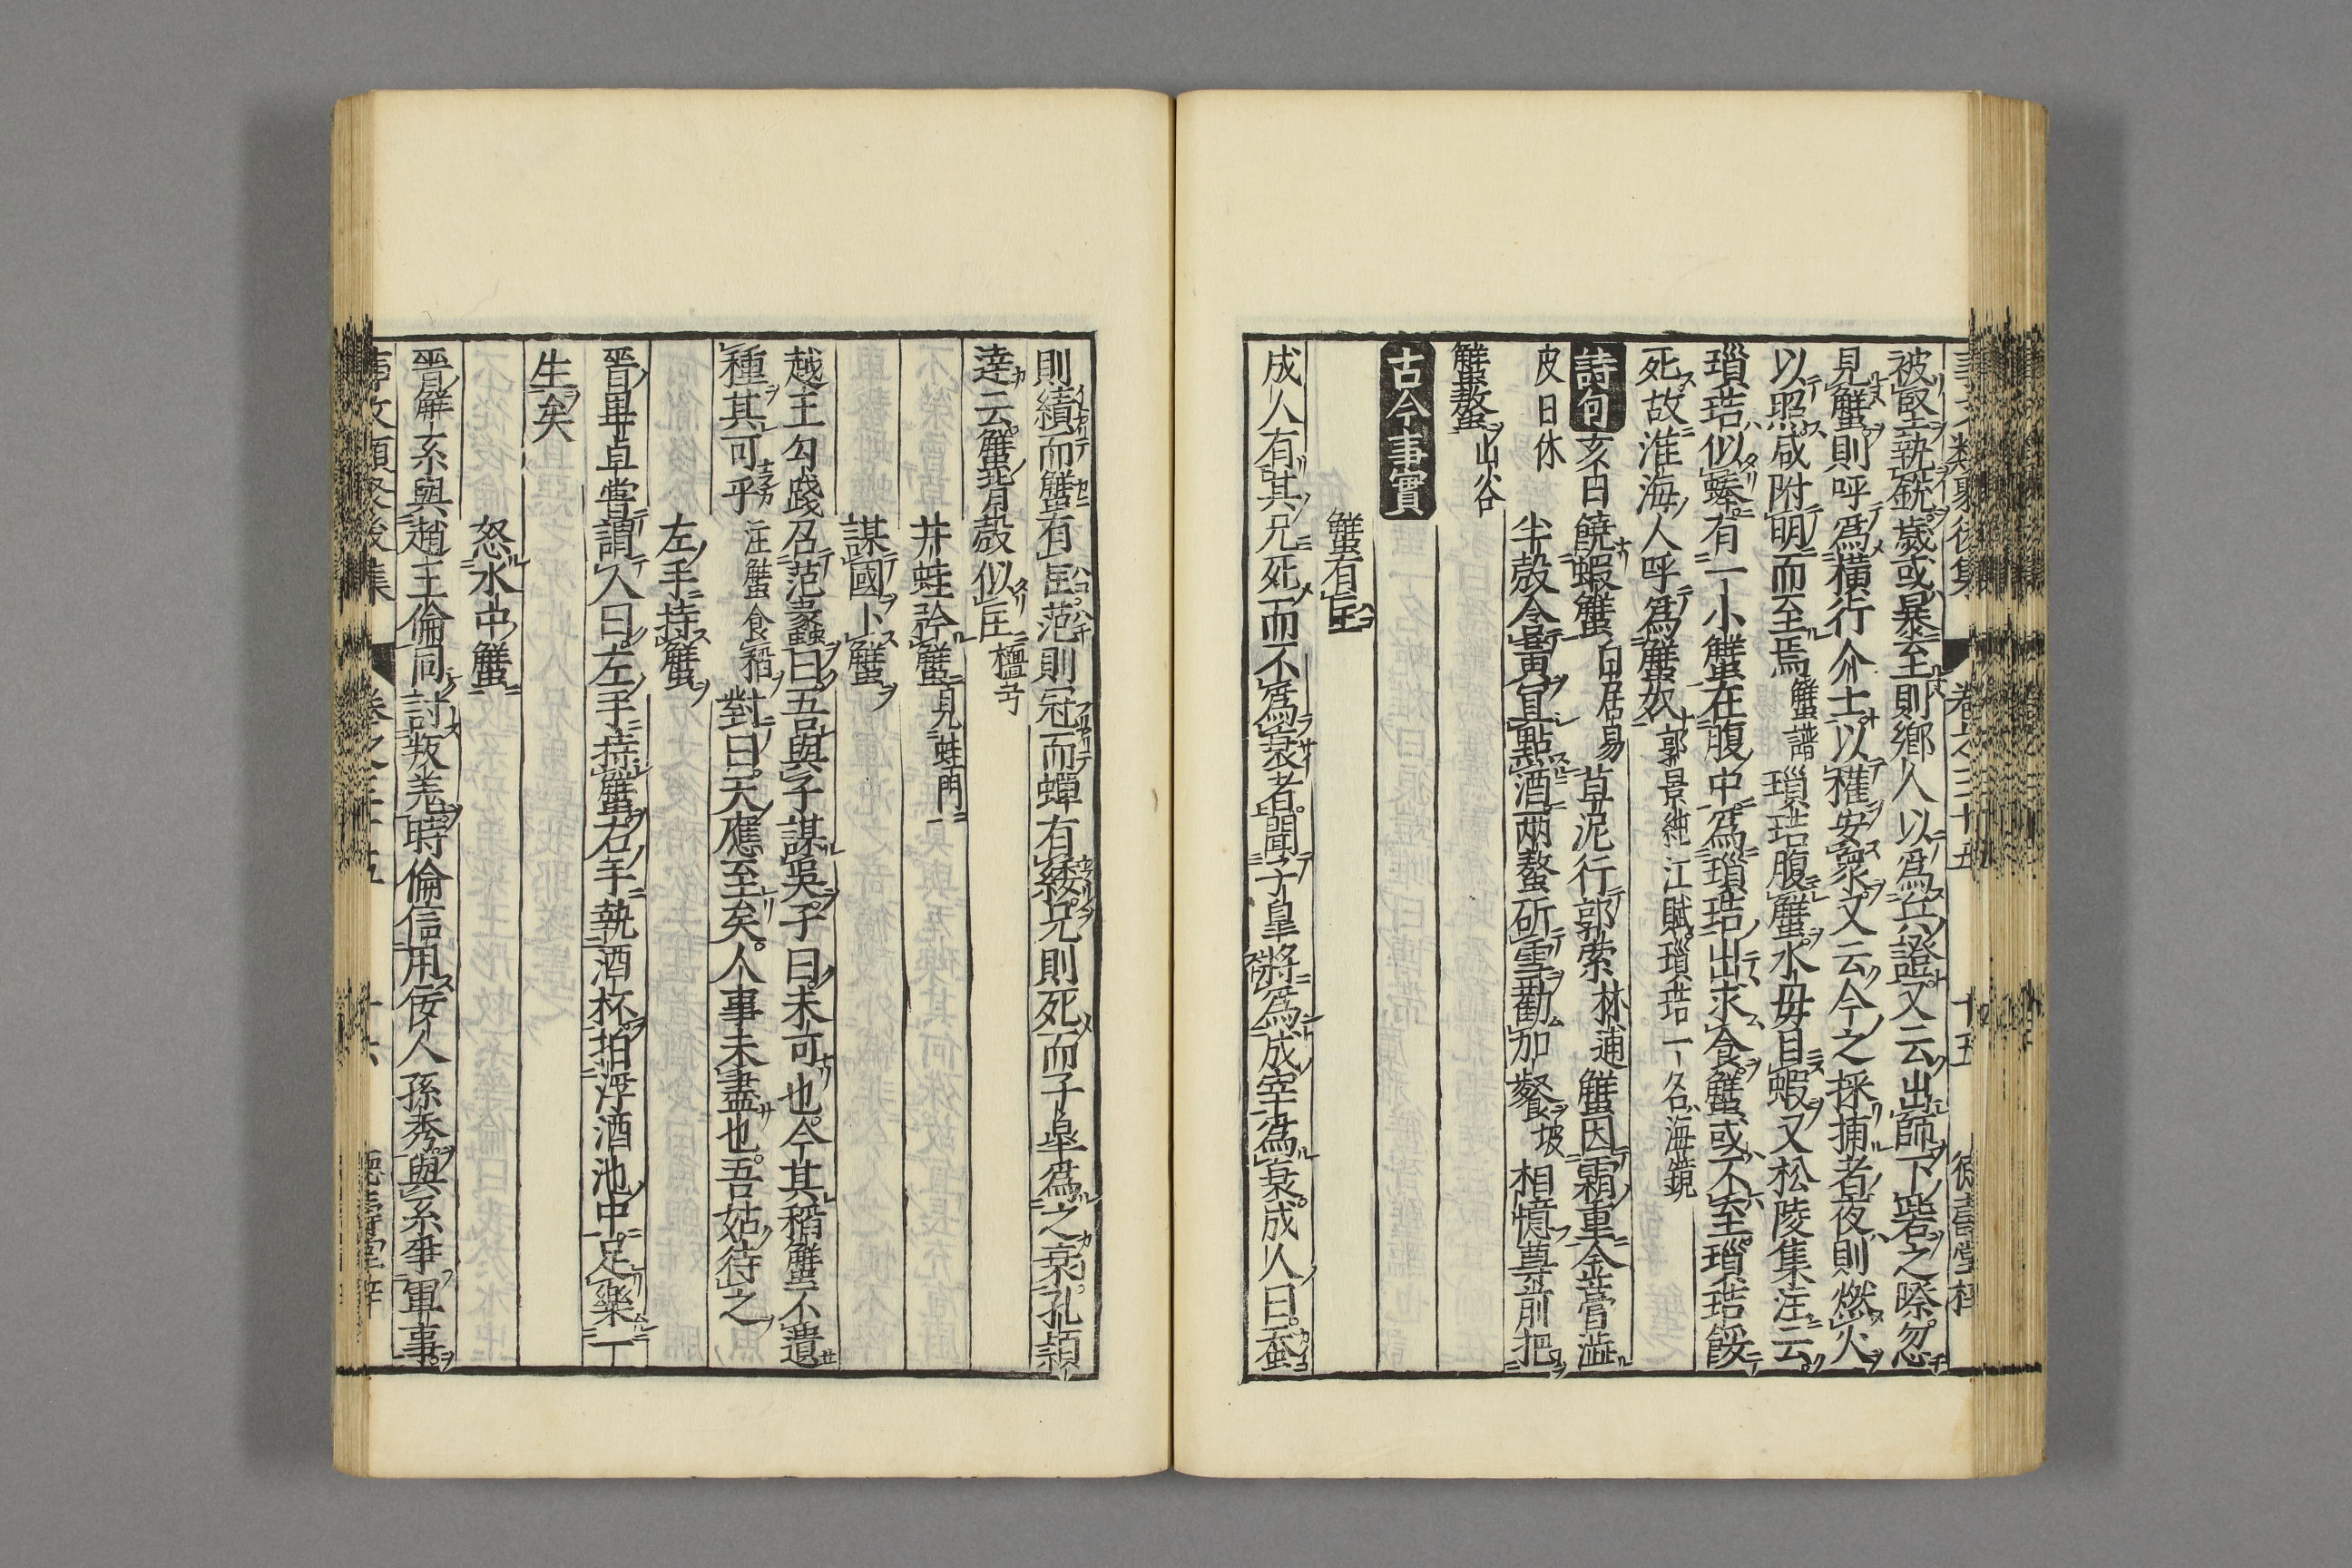 被堅執銳歲或暴至則鄉人以為兵證又云出師下砦之際忽
見蟹則呼為橫行介士以權安衆又云今之採捕者夜則燃火
以照咸附明而至焉蟹譜瑣琂腹蟹水母目蝦又松陵集注云
瑣琂似蜯有一小蟹在腹中為瑣琂出求食蟹或不至瑣琂餒
死故淮海人呼為蟹奴郭景純江賦瑣琂一名海鏡
詩句亥日饒蝦蟹白居易草泥行郭索林逋蟹因霜重金膏溢
皮日休半殼含黃宜點酒兩螯斫雪勸加餐坡相憶尊前把
蟹螯山谷
古今事實
蟹有匡
成人有其兄死而不為衰者聞子皐將為成宰遂為衰成人曰蚕
則績而蟹有匡范則冠而蟬有緌兄則死而子皐為之衰孔頴
達云蟹背殼似匡檀弓
井蛙誇蟹見蛙門
謀國卜蟹
越王勾踐召范蠡曰吾與子謀吳子曰未可也今其稻蟹不遺
種其可乎注蟹食稻對曰天應至矣人事未盡也吾姑待之
左手持蟹
晉畢卓嘗謂人曰左手持蟹右手執酒杯拍浮酒池中足樂一
生矣
怒水中蟹
晉解系與趙王倫同討叛羌時倫信用佞人孫秀與系爭軍事